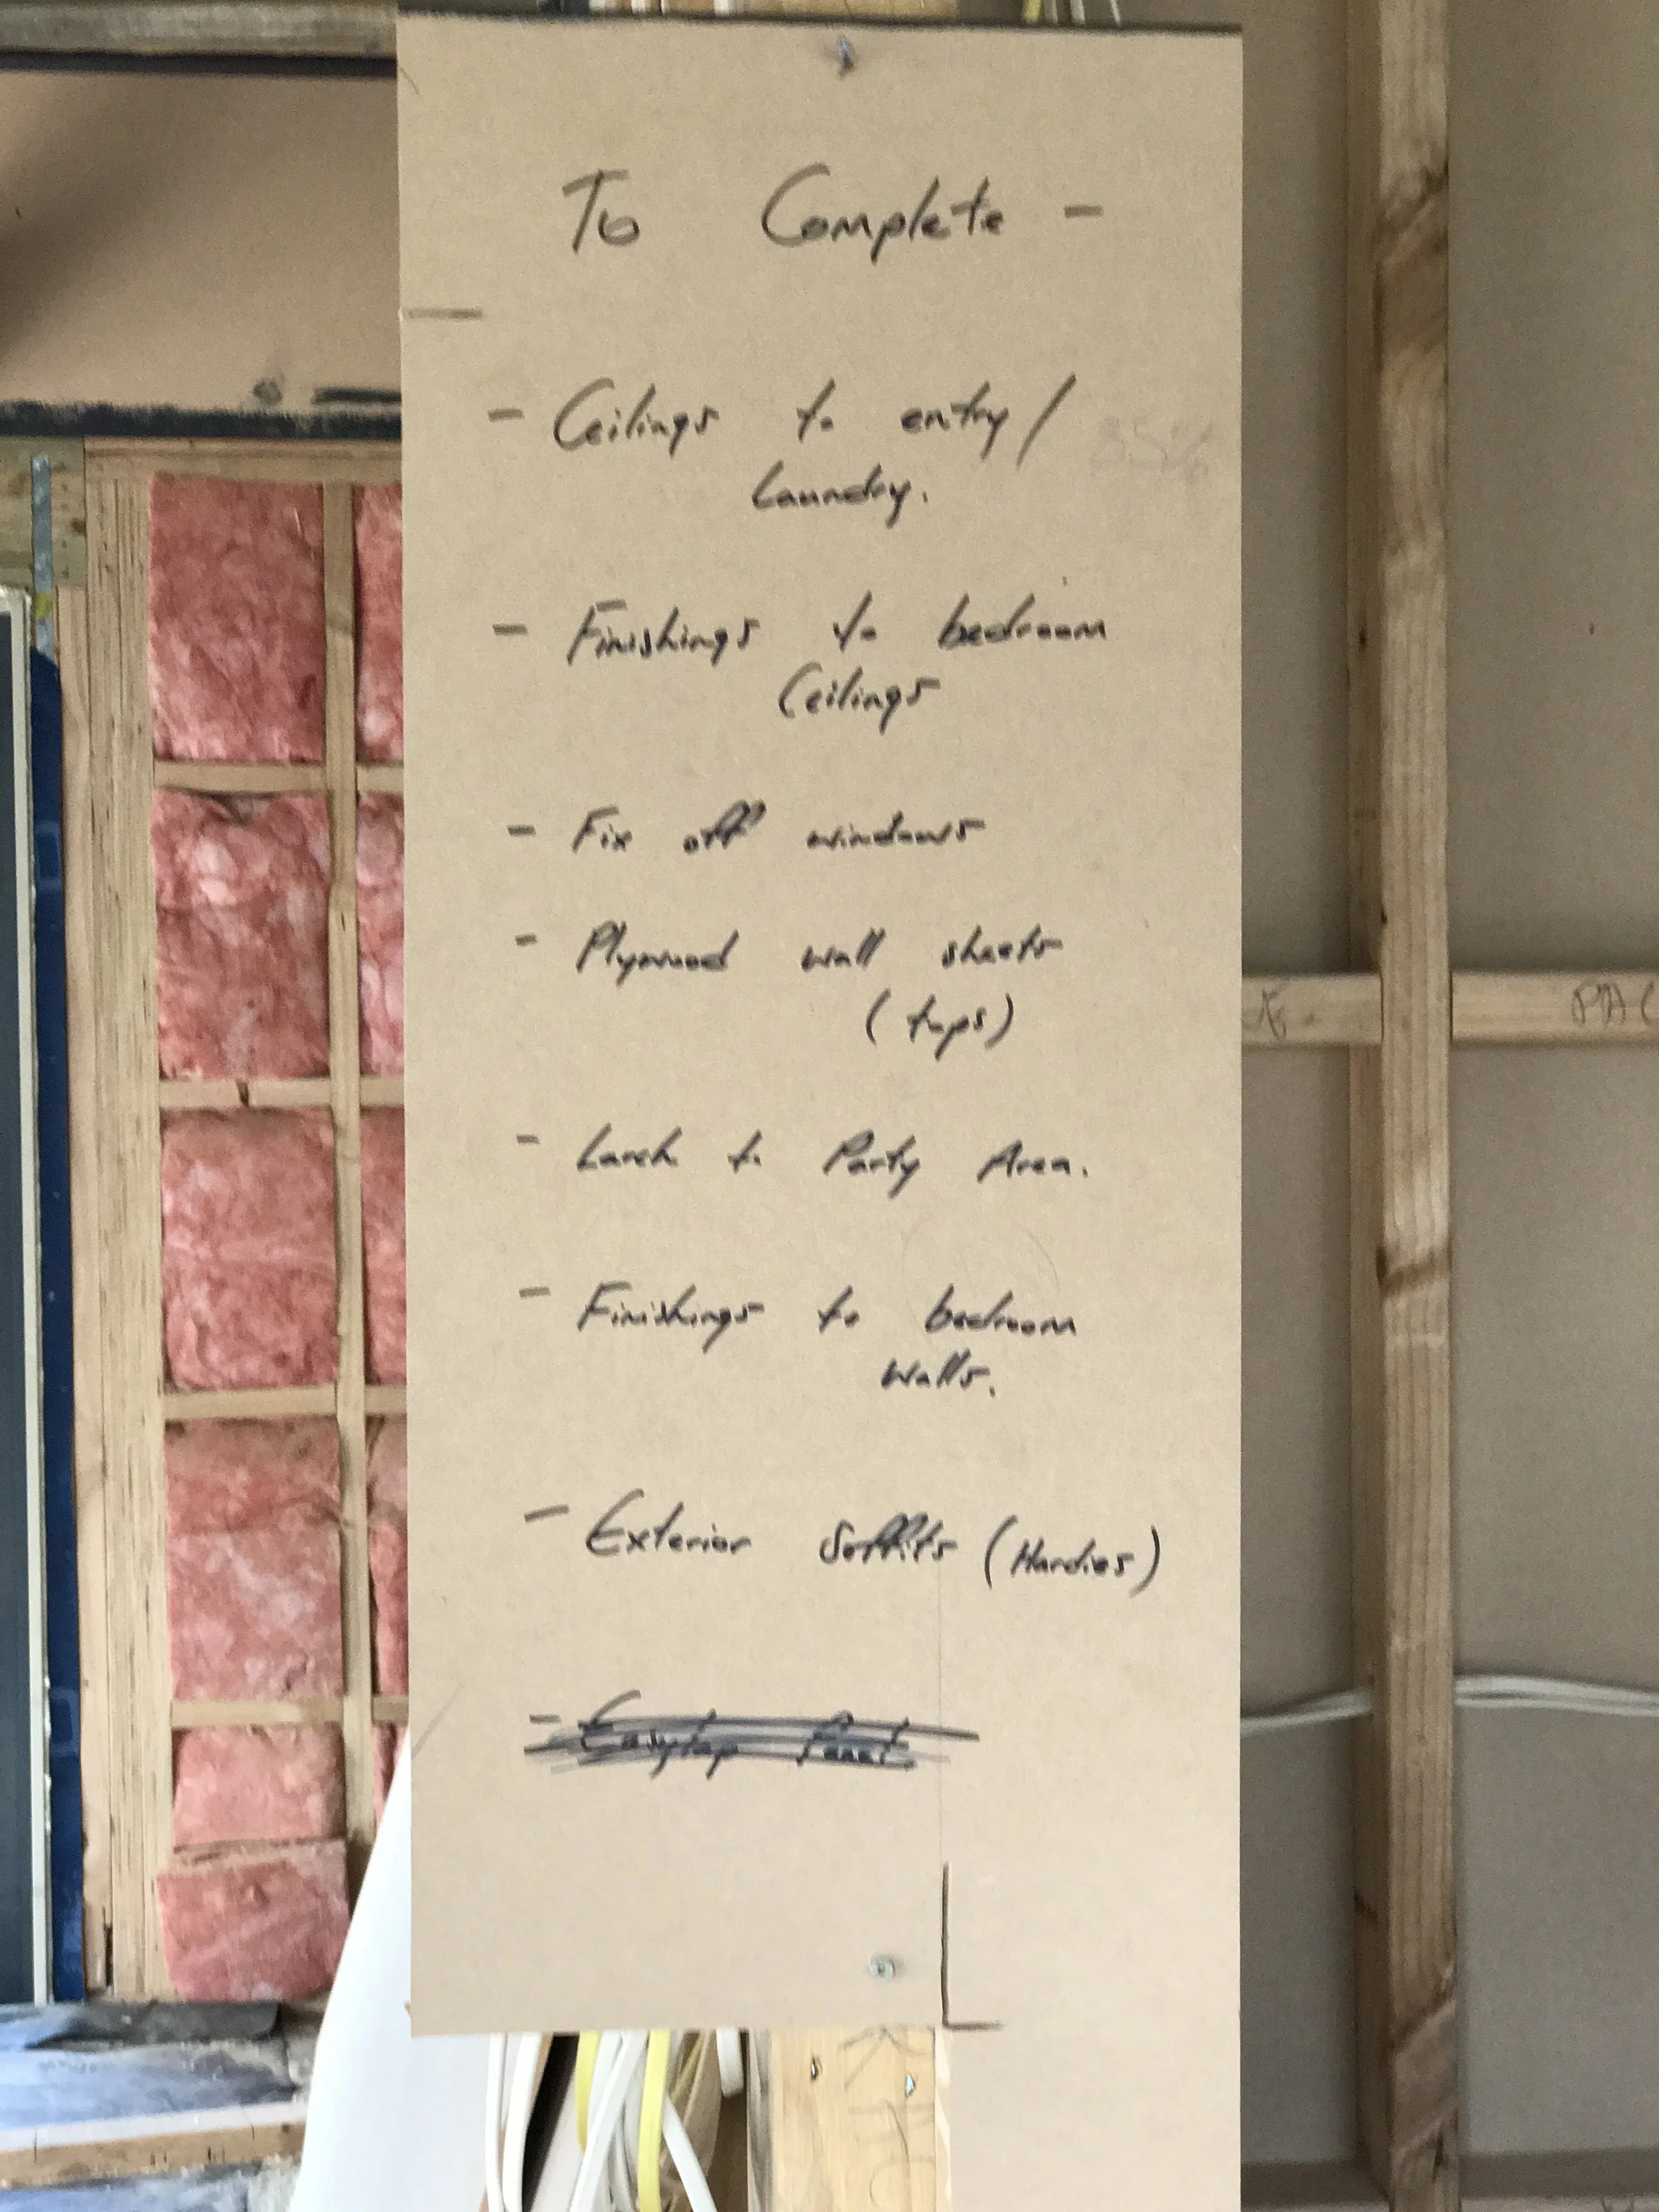 To Complete -
- Ceilings to entry/
Laundry.
- Finishings to bedroom
Ceilings
- Fix off windows
- Plywood wall sheets
(tops)
- Larch to Party Area.
- Finishings to bedroom
walls.
- Exterior Soffits (Hardies)
- Easylap Panel.